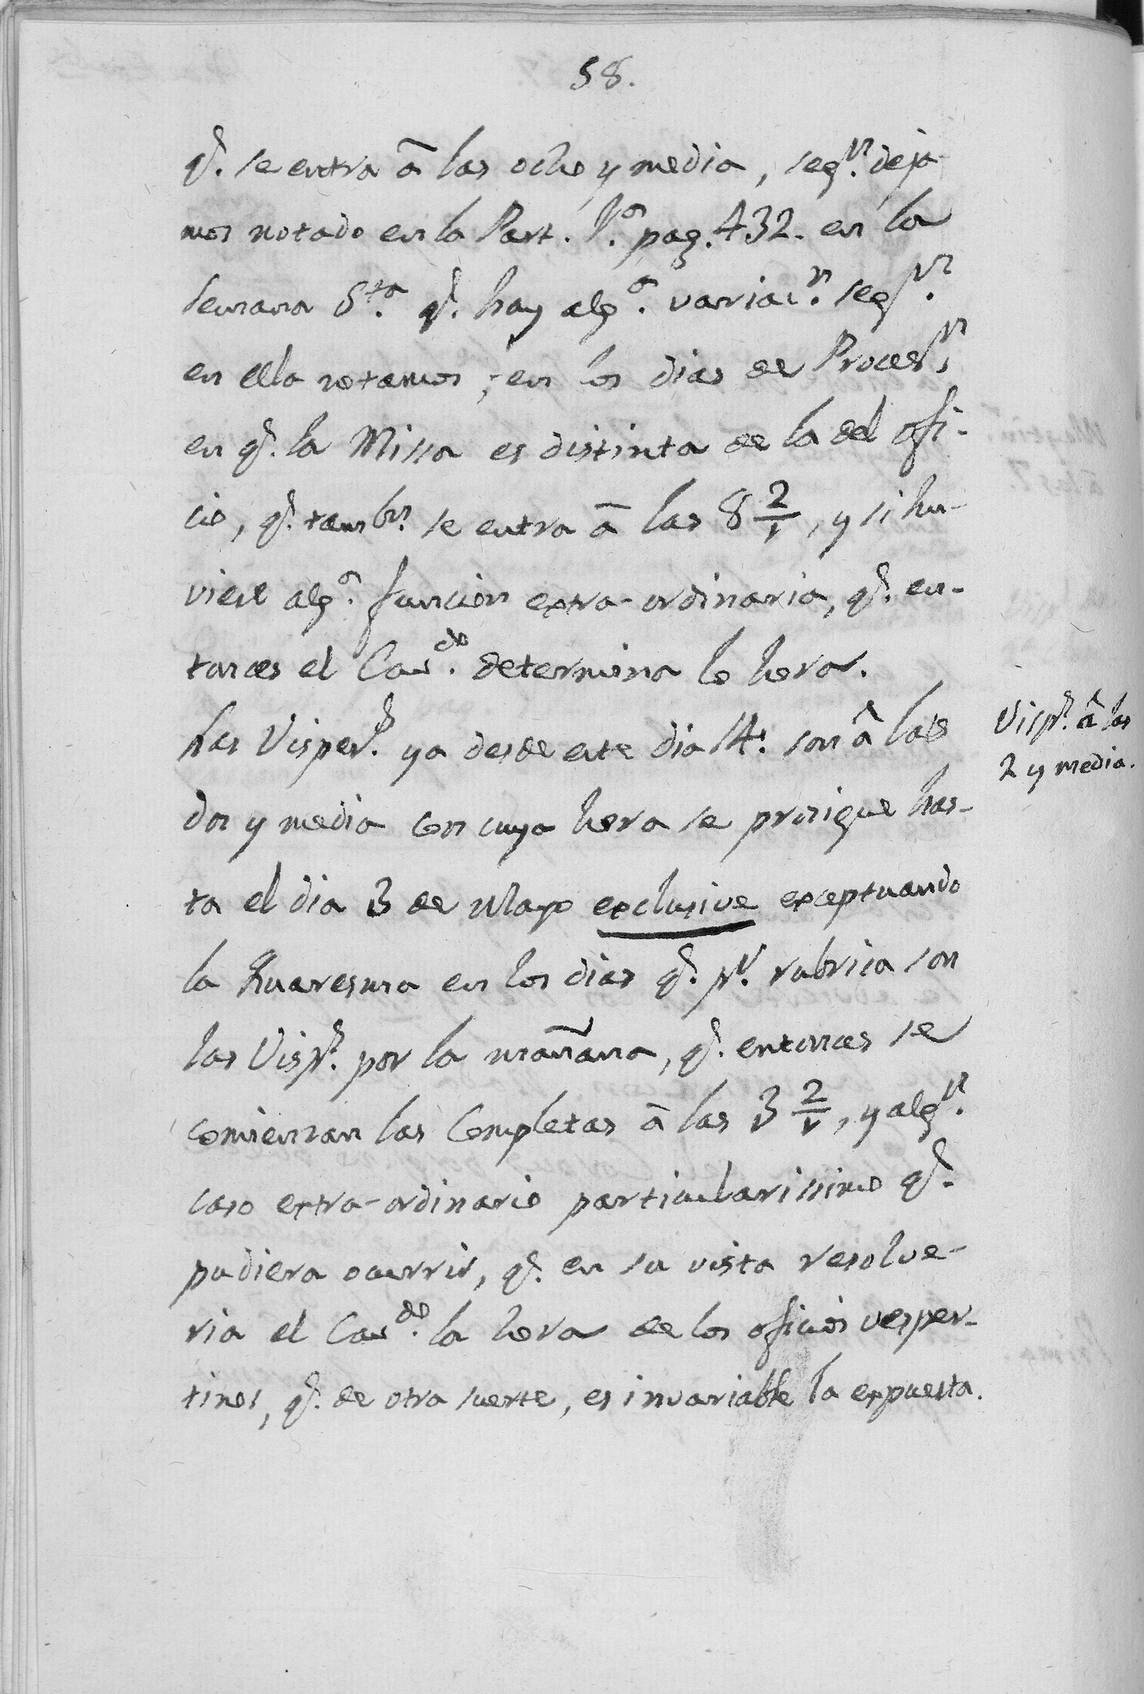 58.
q.^e se entra â las ocho y media, seg.^n deja-
mos notado en la Part. 1.^a pag. 432. en la
semana S.^ta q.^e hay alg.^a variac.^n seg.^n
en ella notamos; en los dias de Proces.^n
en q.^e la Missa es distinta de la del ofi-
cio, q.^e tamb.^n se entra â las 8 2/1, y si hu-
viese alg.^a funcion extra-ordinaria, q.^e en-
tonces el Cav.^do determina la hora.
Las Visper.^s ya desde este dia 14. son â las
dos y media con cuya hora se prosigue has-
ta el dia 3 de Mayo exclusive exceptuando
la Quaresma en los dias q.^e p.^r rubrica son
las Visp.^s por la mañana, q.^e entonces se
comienzan las Completas â las 3 2/1, y alg.^n
caso extra-ordinario particularissimo q.^e
pudiera ocurrir, q.^e en su vista resolve-
ria el Cav.^do la hora de los oficios vesper-
tinos, q.^e de otra suerte, es invariable la expuesta.
Visp.^s â las
2 y media.